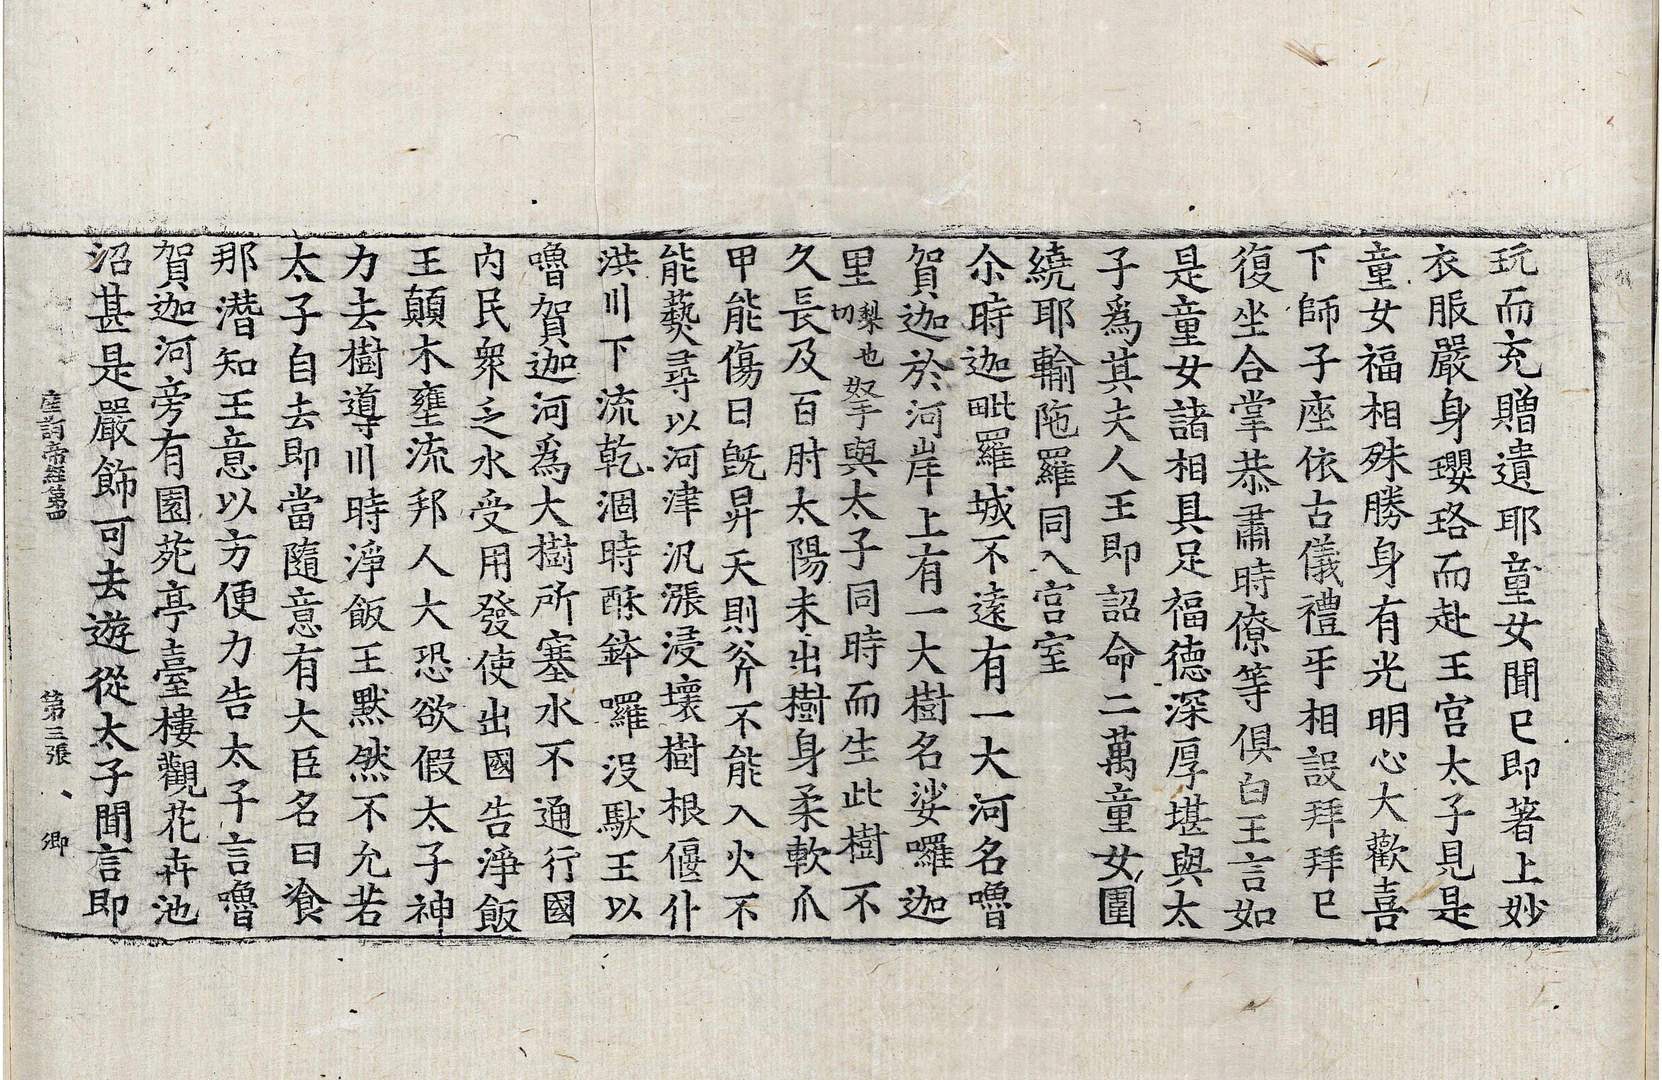 玩而充贈遺耶童女聞巳即著上妙
衣服嚴身瓔珞而赴王宮太子見是
童女福相殊勝身有光明心大歡喜
下師子座依古儀禮平相設拜拜巳
復坐合掌恭肅時僚等俱白王言如
是童女諸相具足福德深厚堪與太
子爲其夫人王即詔命二萬童女圍
繞耶輸陁羅同入宮室
尒時迦毗羅城不遠有一大河名嚕
賀迦於河岸上有一大樹名娑囉迦
里梨也切拏與太子同時而生此樹不
久長及百肘太陽未出樹身柔軟爪
甲能傷日旣昇天則斧不能入火不
能爇尋以河津汎漲浸壞樹根偃仆
洪川下流乾涸時酥鉢囉沒馱王以
嚕賀迦河爲大樹所塞水不通行國
內民衆乏水受用發使出國告淨飯
王顛木壅流邦人大恐欲假太子神
力去樹導川時淨飯王默然不允若
太子自去即當隨意有大臣名曰飡
那潛知王意以方便力告太子言嚕
賀迦河旁有園苑亭臺樓觀花卉池
沼甚是嚴飾可去遊從太子聞言即
帝經第四 第三張 卿